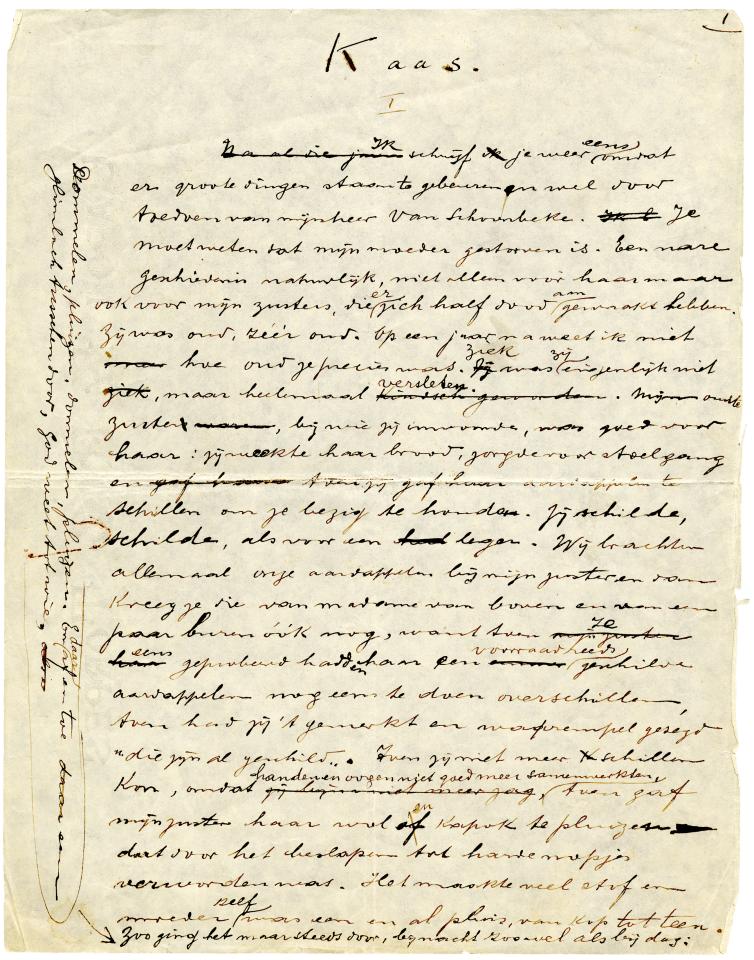 1
Kaas.
I
Ik eens
Na al die jaren schrijf ik je weer omdat
er groote dingen staan te gebeuren en wel door
toedoen van mijnheer Van Schoonbeke. Je
moet weten dat mijn moeder gestorven is. Een nare
geschiedenis natuurlijk, niet alleen voor haar maar
er am
ook voor mijn zusters, die zich half dood gewaakt hebben.
Zij was oud, zéér oud. Op een jaar na weet ik niet
ziek zij
maar hoe oud ze precies was. Zij was eigenlijk niet
versleten.
ziek, maar heelemaal kindsch geworden. Mijn oudste
zuster waren, bij wie zij inwoonde, was goed voor
haar: zij weekte haar brood, zorgde voor stoelgang
en gaf haar toen zij gaf haar aardappelen te
schillen om ze bezig te houden. Zij schilde,
schilde, als voor een leger. Wij brachten
allemaal onze aardappelen bij mijn zuster en dan
kreeg ze die van madame van boven en van een
ze
paar buren óók nog, want toen mijn zuster
eens voorraad reeds
haar geprobeerd hadden haar een emmer geschilde
aardappelen nog eens te doen overschillen,
toen had zij 't gemerkt en waarempel gezegd
"die zijn al geschild". Toen zij niet meer schillen
handen en oogen niet goed meer samenwerkten,
kon, omdat zij bijna niet meer zag, toen gaf
en
mijn zuster haar wol of kapok te pluizen
dat door het beslapen tot harde nopjes
verworden was. Het maakte veel stof en
zelf
moeder was een en al pluis, van kop tot teen.
Zoo ging het maar steeds door, bij nacht zoowel als bij dag:
Dommelen, pluizen, dommelen, pluizen. En daar
af en toe door een
glimlach tusschen door, God weet tot wie.